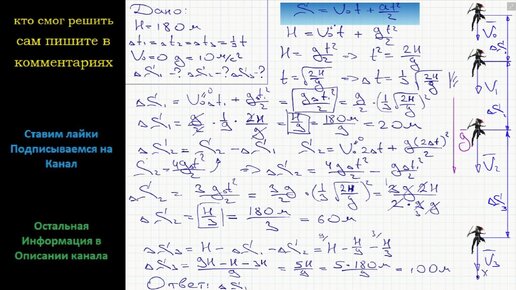 кто смог решить
сам пишите в
комментариях
Ставим лайки
Подписываемся на
Канал
Остальная
Информация в
Описании канала
Дано:
H=180м
Δt₁=Δt₂=Δt₃=⅓t
V₀=0 g=10м/с²
ΔS₁-? ΔS₂-? ΔS₃-?
S=V₀t+at²/2
H=V₀t+gt²/2
H=gt²/2 => t²=2H/g
t=√(2H/g) => Δt=⅓√(2H/g)
ΔS₁=V₀Δt+gΔt²/2=gΔt²/2=g/2·(⅓√(2H/g))²
ΔS₁=g/2·1/9·2H/g=H/9=180м/9=20м
ΔS₂=S₂-ΔS₁ S₂=V₀2Δt+g(2Δt)²/2
S₂=4gΔt²/2 => ΔS₂=4gΔt²/2-gΔt²/2
ΔS₂=3gΔt²/2=3g/2·(⅓√(2H/g))²=3g2H/2·9g
ΔS₂=H/3=180м/3=60м
ΔS₃=H-ΔS₁-ΔS₂=H-H/9-H/3
ΔS₃=9H-H-3H/9=5H/9=5·180м/9=100м
Ответ: ΔS₁
V₀
ΔS₁
V₁
ΔS₂
g
V₂
V₃
x